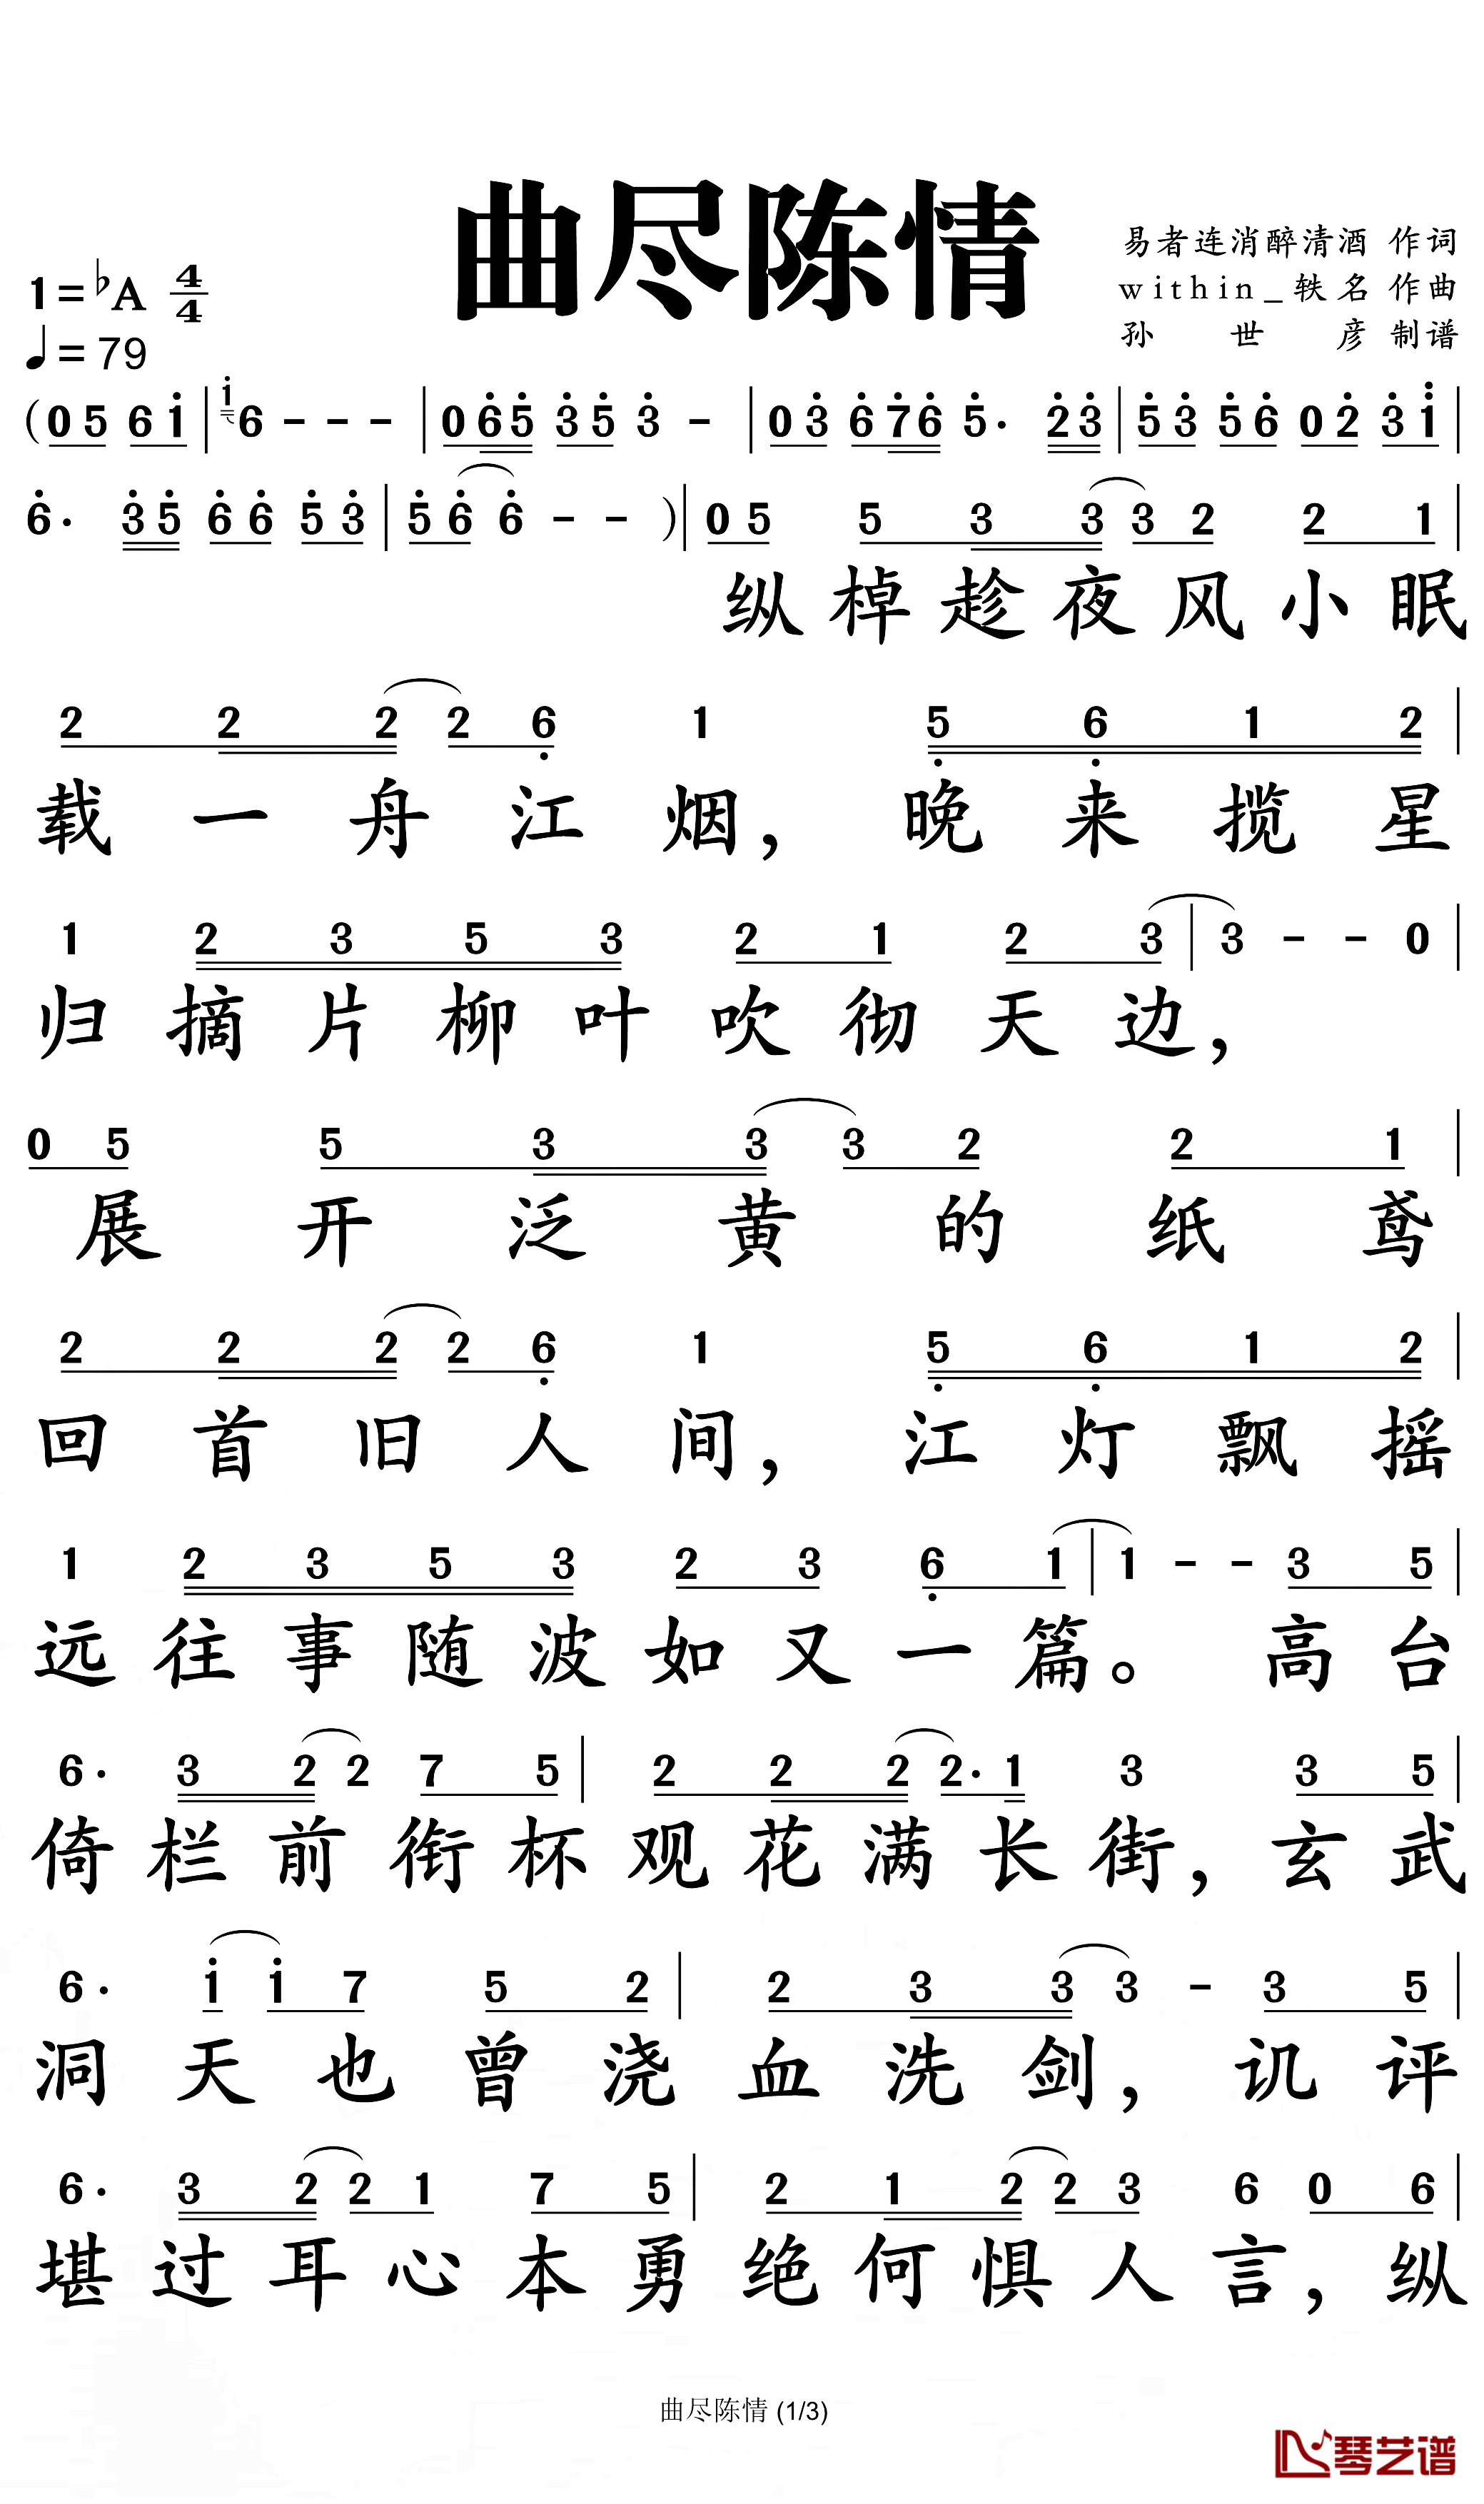 曲尽陈情
易者连消醉清酒 作词
within_轶名 作曲
孙世彦 制谱
1=♭A 4/4
♩=79
(05 61|1 6 - - -|065 35 3 -|03 676 5. 23|53 56 02 31|
6. 35 66 53|56 6 - - )|05 5 3 3 3 2 2 1|
纵棹趁夜风小眠
2 2 2 2 6 1 5 6 1 2|
载一舟江烟，晚来揽星
1 2 3 5 3 2 1 2 3|3 - - 0|
归摘片柳叶吹彻天边，
0 5 5 3 3 3 2 2 1|
展开泛黄的纸鸢
2 2 2 2 6 1 5 6 1 2|
回首旧人间，江灯飘摇
1 2 3 5 3 2 3 6 1|1 - - 3 5|
远往事随波如又一篇。高台
6. 3 2 2 7 5|2 2 2 2. 1 3 3 5|
倚栏前衔杯观花满长街，玄武
6. 1 1 7 5 2|2 3 3 3 - 3 5|
洞天也曾浇血洗剑，讥评
6. 3 2 2 1 7 5|2 1 2 2 3 6 0 6|
堪过耳心本勇绝何惧人言，纵
曲尽陈情 (1/3)
琴艺谱